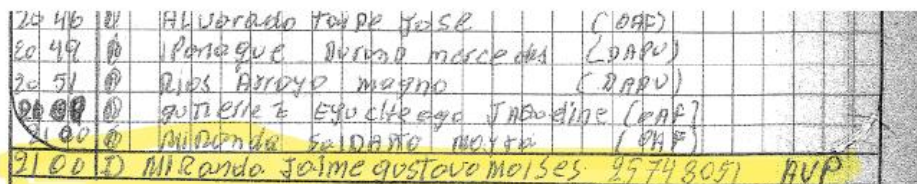 20 46 D Alvarado Taipe Jose (OAF)
20 49 D Ipanaque Durand mercedes (DAPU)
20 51 D Rios Arroyo magno (DAPU)
D gutierrez Jaqueline (OAF)
21 00 D MIRanda Mayra (OAF)
21 00 D MIRanda Jaime gustavo MOISES 25748051 AVP